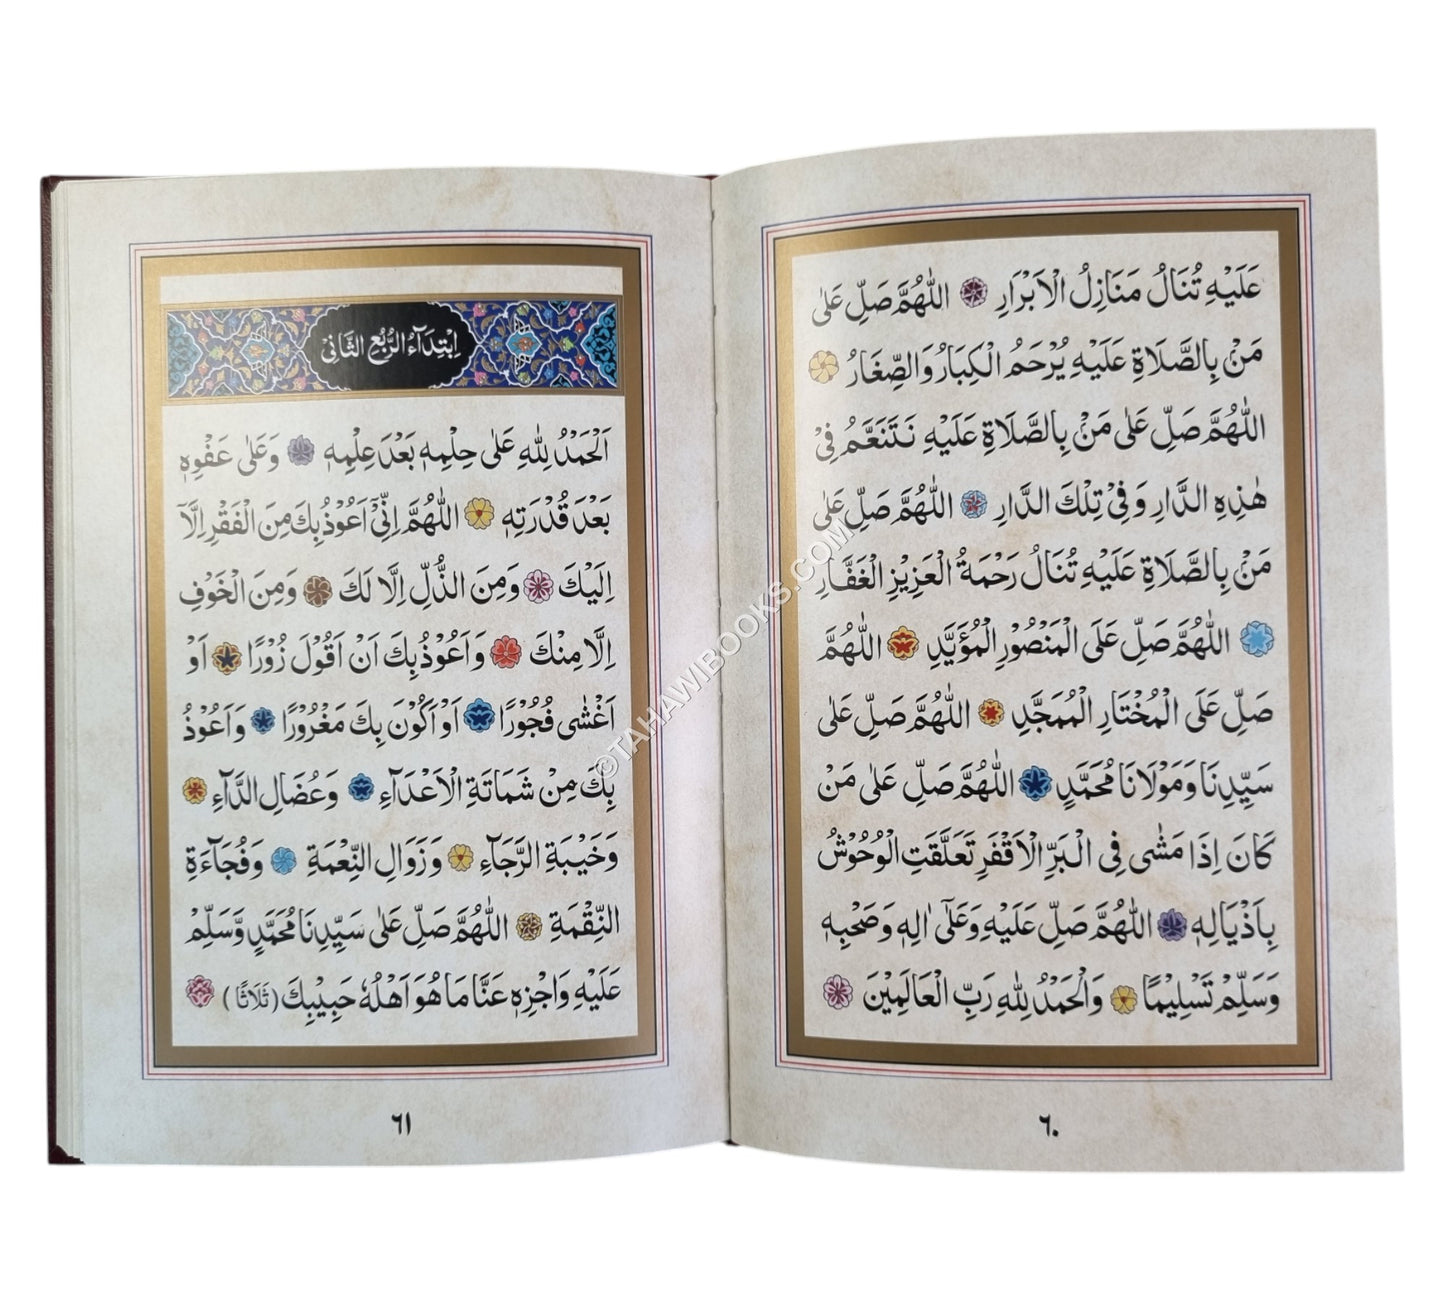 عَلَيْهِ تُنَالُ مَنَازِلُ الْاَبْرَارِ اَللّٰهُمَّ صَلِّ عَلٰى
مَنْ بِالصَّلَاةِ عَلَيْهِ يُرْحَمُ الْكِبَارُ وَالصِّغَارُ
اَللّٰهُمَّ صَلِّ عَلٰى مَنْ بِالصَّلَاةِ عَلَيْهِ نَتَنَعَّمُ فِيْ
هٰذِهِ الدَّارِ وَفِيْ تِلْكَ الدَّارِ اَللّٰهُمَّ صَلِّ عَلٰى
مَنْ بِالصَّلَاةِ عَلَيْهِ تُنَالُ رَحْمَةُ الْعَزِيْزِ الْغَفَّارِ
اَللّٰهُمَّ صَلِّ عَلَى الْمَنْصُوْرِ الْمُؤَيَّدِ اَللّٰهُمَّ
صَلِّ عَلَى الْمُخْتَارِ الْمُمَجَّدِ اَللّٰهُمَّ صَلِّ عَلٰى
سَيِّدِنَا وَمَوْلَانَا مُحَمَّدٍ اَللّٰهُمَّ صَلِّ عَلٰى مَنْ
كَانَ اِذَا مَشٰى فِي الْبَرِّ الْاَقْفَرِ تَعَلَّقَتِ الْوُحُوْشُ
بِاَذْيَالِهٖ اَللّٰهُمَّ صَلِّ عَلَيْهِ وَعَلٰٓى اٰلِهٖ وَصَحْبِهٖ
وَسَلِّمْ تَسْلِيْمًا وَالْحَمْدُ لِلّٰهِ رَبِّ الْعَالَمِيْنَ
٦٠
اِبْتِدَآءُ الرُّبُعِ الثَّانِيْ
اَلْحَمْدُ لِلّٰهِ عَلٰى حِلْمِهٖ بَعْدَ عِلْمِهٖ وَعَلٰى عَفْوِهٖ
بَعْدَ قُدْرَتِهٖ اَللّٰهُمَّ اِنِّيْٓ اَعُوْذُ بِكَ مِنَ الْفَقْرِ اِلَّآ
اِلَيْكَ وَمِنَ الذُّلِّ اِلَّا لَكَ وَمِنَ الْخَوْفِ
اِلَّا مِنْكَ وَاَعُوْذُ بِكَ اَنْ اَقُوْلَ زُوْرًا اَوْ
اَغْشٰى فُجُوْرًا اَوْ اَكُوْنَ بِكَ مَغْرُوْرًا وَاَعُوْذُ
بِكَ مِنْ شَمَاتَةِ الْاَعْدَآءِ وَعُضَالِ الدَّآءِ
وَخَيْبَةِ الرَّجَآءِ وَزَوَالِ النِّعْمَةِ وَفُجَآءَةِ
النِّقْمَةِ اَللّٰهُمَّ صَلِّ عَلٰى سَيِّدِنَا مُحَمَّدٍ وَّسَلِّمْ
عَلَيْهِ وَاجْزِهٖ عَنَّا مَا هُوَ اَهْلُهٗ حَبِيْبِكَ (ثَلَاثًا)
٦١
©TAHAWIBOOKS.COM